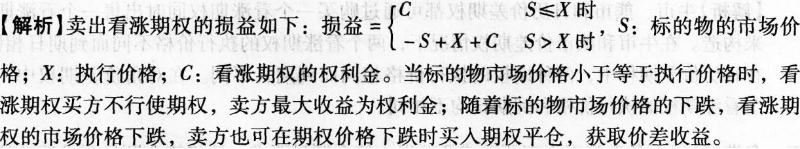 【解析】卖出看涨期权的损益如下：损益={C S≤X时 -S+X+C S≥X时，S：标的物的市场价
格；X：执行价格；C：看涨期权的权利金。当标的物市场价格小于等于执行价格时，看
涨期权买方不行使期权，卖方最大收益为权利金；随着标的物市场价格的下跌，看涨期
权的市场价格下跌，卖方也可在期权价格下跌时买入期权平仓，获取价差收益。